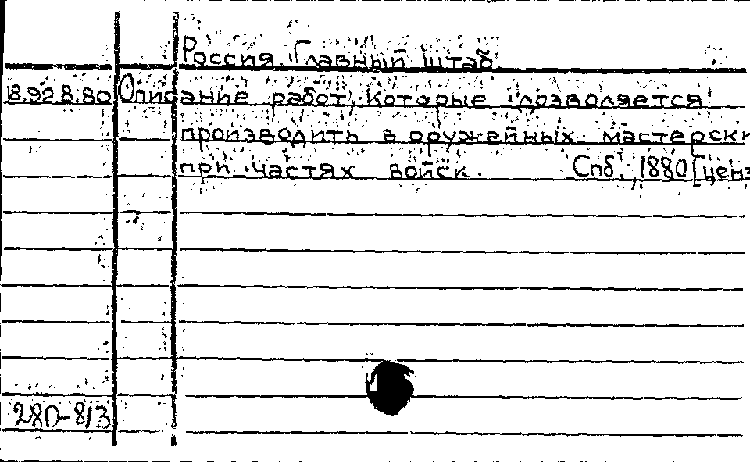 Россия. Главный штаб.
18.92.8.80 Описание работ, которые дозволяется
производить в оружейных мастерски
при частях войск. Спб., 1880 [ценз
280-813